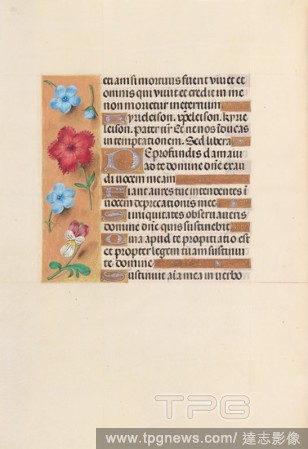 etiam si mortuus fuerit vivet et
omnis qui vivit et credit in me
non morietur in eternum
Kyrieleison. xpeleison. kyrie
leison. pater nr̄ Et ne nos inducas
in temptationem. Sed libera
De profundis clamavi
ad te domine dn̄e exau
di vocem meam
Fiant aures tue intendentes in
vocem deprecationis mee
Si iniquitates observaveris
domine dn̄e quis sustinebit
Quia apud te propitiatio est
et propter legem tuam sustinui
te domine
Sustinuit aīa mea in verbo
TPG
www.tpgnews.com/ 達志影像